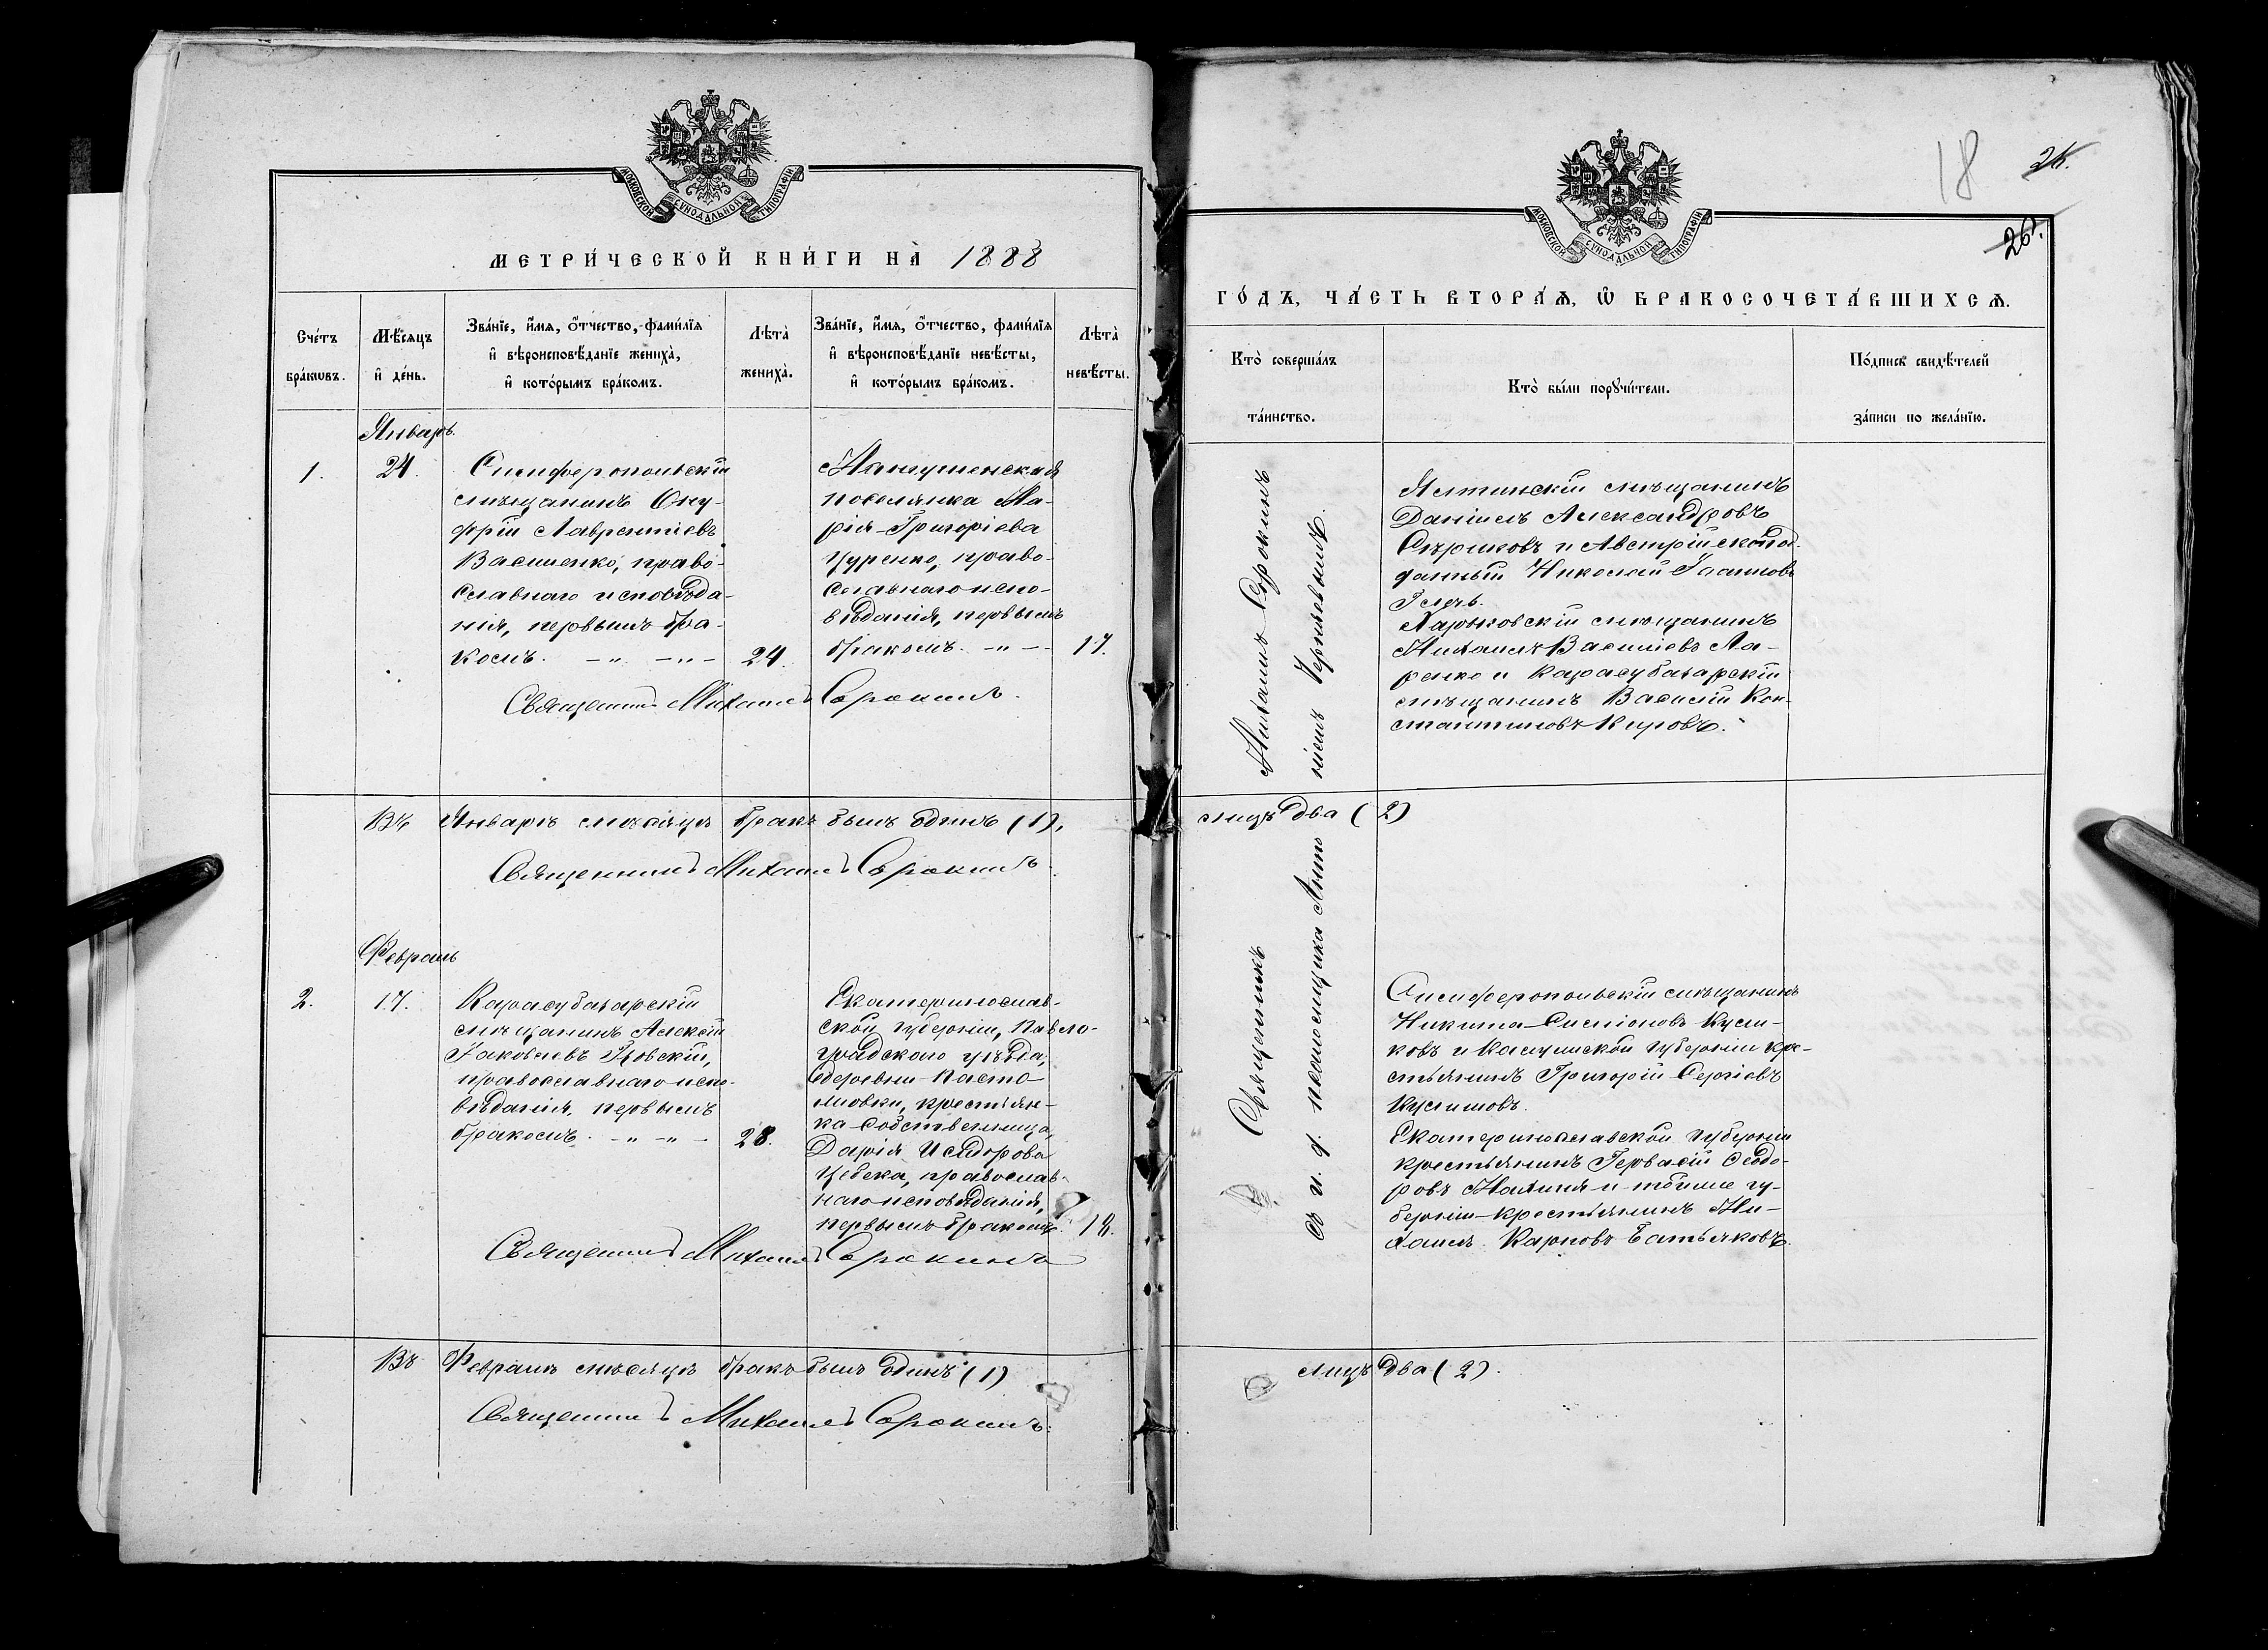 МОСКОВСКОЙ СУНОДАЛЬНОЙ ТИПОГРАФІИ
МЕТРИ́ЧЕСКОЙ КНИ́ГИ НА̀ 1888
Сче́тъ бра́кѡвъ.
Мѣ́сяцъ и҆ де́нь.
Зва́нїе, и҆́мѧ, ѻ҆́тчество, фами́лїѧ
и҆ вѣроисповѣ́данїе жениха̀,
и҆ кото́рымъ бра́комъ.
Лѣта̀ жениха̀.
Зва́нїе, и҆́мѧ, ѻ҆́тчество, фами́лїѧ
и҆ вѣроисповѣ́данїе невѣ́сты,
и҆ кото́рымъ бра́комъ.
Лѣта̀ невѣ́сты.
Январь.
1.
24.
Симферопольскій
мѣщанинъ Ону-
фрій Лаврентіевъ
Василенко, право-
славнаго исповѣда-
нія, первымъ бра-
комъ. -"- -"-
24.
поселянка Ма-
рія Григоріева
Цуренко, право-
славнаго испо-
вѣданія, первымъ
бракомъ. -"-
17.
Священникъ Михаилъ Сорокинъ.
Въ Январѣ мѣсяцѣ бракъ былъ одинъ (1),
Священникъ Михаилъ Сорокинъ.
Февраль
2.
17.
Карасубазарскій
мѣщанинъ Алексій
Іаковлевъ
православнаго испо-
вѣданія, первымъ
бракомъ. -"- -"-
28.
Екатеринослав-
ской губерніи, Павло-
градскаго уѣзда,
деревни
крестьян-
ка собственница,
Дарія Исидорова
православ-
наго исповѣданія,
первымъ бракомъ.
18.
Священникъ Михаилъ Сорокинъ
Въ Февралѣ мѣсяцѣ бракъ былъ одинъ (1)
Священникъ Михаилъ Сорокинъ.
18
25.
26.
МОСКОВСКОЙ СУНОДАЛЬНОЙ ТИПОГРАФІИ
ГО́ДЪ, ЧА́СТЬ ВТОРА́Ѧ, Ѡ҆ БРАКОСОЧЕТА́ВШИХСѦ.
Кто̀ соверша́лъ
та́инство.
Кто̀ бы́ли порꙋчи́тели.
По́дпись свидѣ́телей
за́писи по жела́нїю.
Священникъ Михаилъ Сорокинъ
съ и. д. псаломщика
Ялтинскій мѣщанинъ
Даніилъ Александровъ
Сѣриковъ и Австрійскій под-
данный Николай
Харьковскій мѣщанинъ
Михаилъ Василіевъ Ла-
ренко и Карасубазарскій
мѣщанинъ Василій Кон-
стантиновъ Кировъ.
лицъ два (2)
Симферопольскій мѣщанинъ
Никита Симіоновъ Кули-
ковъ и Калужской губерніи кре-
стьянинъ Григорій Сергіевъ
Екатеринославской губерніи
крестьянинъ Гервасій Ѳеодо-
ровъ Махиня и тойже гу-
берніи крестьянинъ Ми-
хаилъ Карповъ Батьяковъ.
лицъ два (2).